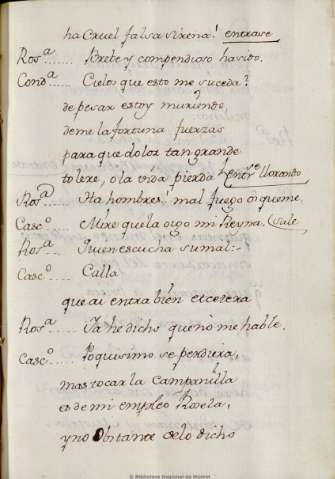 ha Cruel falsa sirena! entrase
Ros.ª ...... Brebe y compendioso ha sido.
Cond.ª ..... Cielos que esto me suceda?
de pesar estoy muriendo,
deme la fortuna fuerzas
para que dolor tan grande
tolere, o la vida pierda llorando
Ros.ª ...... Ha hombres, mal fuego os queme,
Casc.º ...... Mire que la oigo mi Reyna. (Sale
Ros.ª ...... Quien escucha su mal:-
Casc.º ...... Calla
que ai entra bien etcetera
Ros.ª ..... Ya he dicho que no me hable.
Casc.º ..... Poquisimo se perdiera,
mas tocar la Campanilla
es de mi empleo Rosela,
y no Obstante de lo dicho
© Biblioteca Regional de Madrid